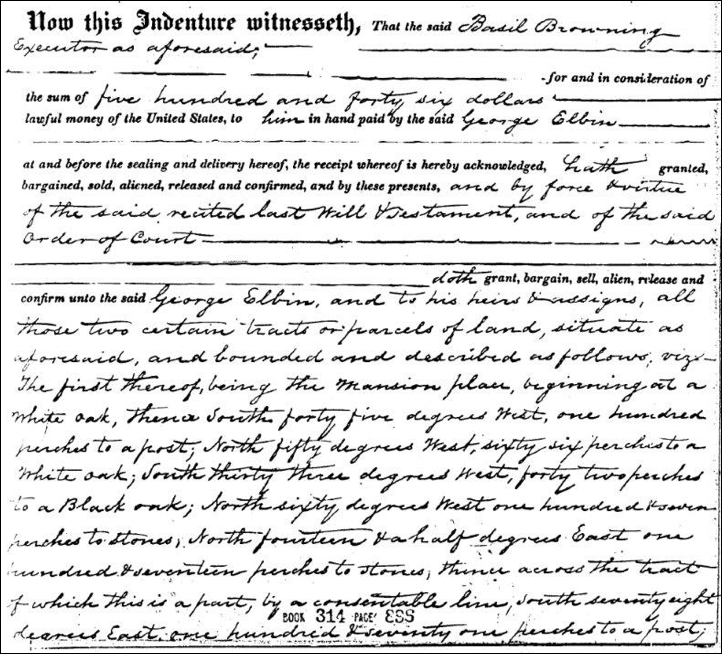 Now this Indenture witnesseth, That the said Basil Browning
Executor as aforesaid;
for and in consideration of
the sum of five hundred and forty six dollars
lawful money of the United States, to him in hand paid by the said George Elbin
at and before the sealing and delivery hereof, the receipt whereof is hereby acknowledged, hath granted,
bargained, sold, aliened, released and confirmed, and by these presents, and by force & virtue
of the said recited last Will & Testament, and of the said
Order of Court
doth grant, bargain, sell, alien, release and
confirm unto the said George Elbin, and to his heirs & assigns, all
those two certain tracts or parcels of land, situate as
aforesaid, and bounded and described as follows, viz
The first thereof, being the Mansion place, beginning at a
White oak, thence South forty five degrees West, one hundred
perches to a post; North fifty degrees West, sixty six perches to a
White oak; South thirty three degrees West, forty two perches
to a Black oak; North sixty degrees West one hundred & seven
perches to stones; North fourteen & a half degrees East one
hundred & seventeen perches to stones; thence across the tract
of which this is a part, by a consentable line, South seventy eight
BOOK 314 PAGE
degrees East one hundred & seventy one perches to a post;